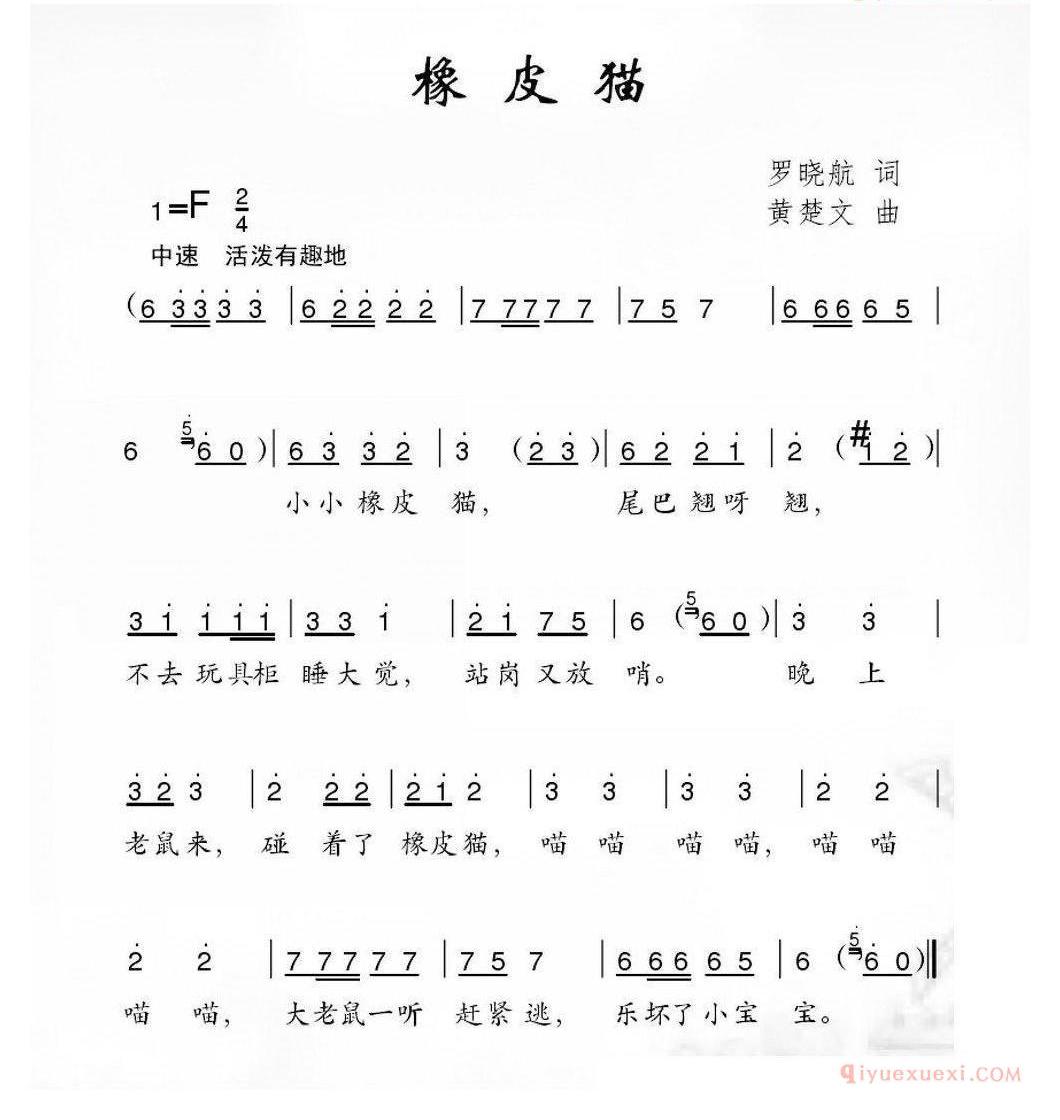 橡皮猫
罗晓航 词
1=F 2/4
黄楚文 曲
中速 活泼有趣地
(6 3̇3̇ 3̇ 3̇ | 6 2̇2̇ 2̇ 2̇ | 7 77 7 7 | 7 5 7 | 6 66 6 5 |
6 5̇ 6̇ 0 ) | 6 3̇ 3̇ 2̇ | 3̇ ( 2̇ 3̇ ) | 6 2̇ 2̇ 1̇ | 2̇ ( #1̇ 2̇ ) |
小小橡皮 猫， 尾巴翘呀 翘，
3 1̇ 1̇ 1̇1̇ | 3 3 1̇ | 2̇ 1̇ 7 5 | 6 ( 5 6 0 ) | 3̇ 3̇ |
不去玩具柜 睡大觉， 站岗又放 哨。 晚 上
3̇ 2̇ 3̇ | 2̇ 2̇ 2̇ | 2̇ 1̇ 2̇ | 3̇ 3̇ | 3̇ 3̇ | 2̇ 2̇ |
老鼠来， 碰 着了 橡皮猫， 喵 喵 喵 喵， 喵 喵
2̇ 2̇ | 7 77 7 7 | 7 5 7 | 6 66 6 5 | 6 ( 5̇ 6̇ 0 ) ‖
喵 喵， 大老鼠一听 赶紧逃， 乐坏了小宝 宝。
qiyuexuexi.COM